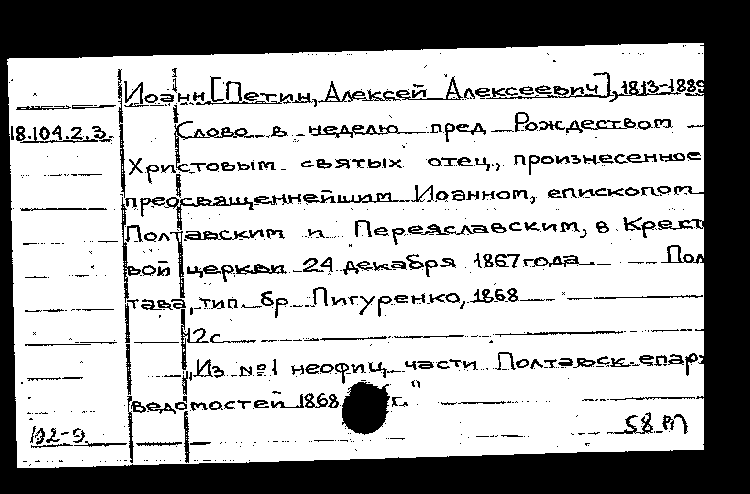 Иоанн [Петин, Алексей Алексеевич], 1813-1889
18.104.2.3. Слово в неделю пред Рождеством
Христовым святых отец, произнесенное
преосвященнейшим Иоанном, епископом
Полтавским и Переяславским, в Кресто
вой церкви 24 декабря 1867 года. Пол
тава, тип. бр. Пигуренко, 1868
12с
„Из №1 неофиц. части Полтавск. епарх
ведомостей 1868 г."
102-9 58